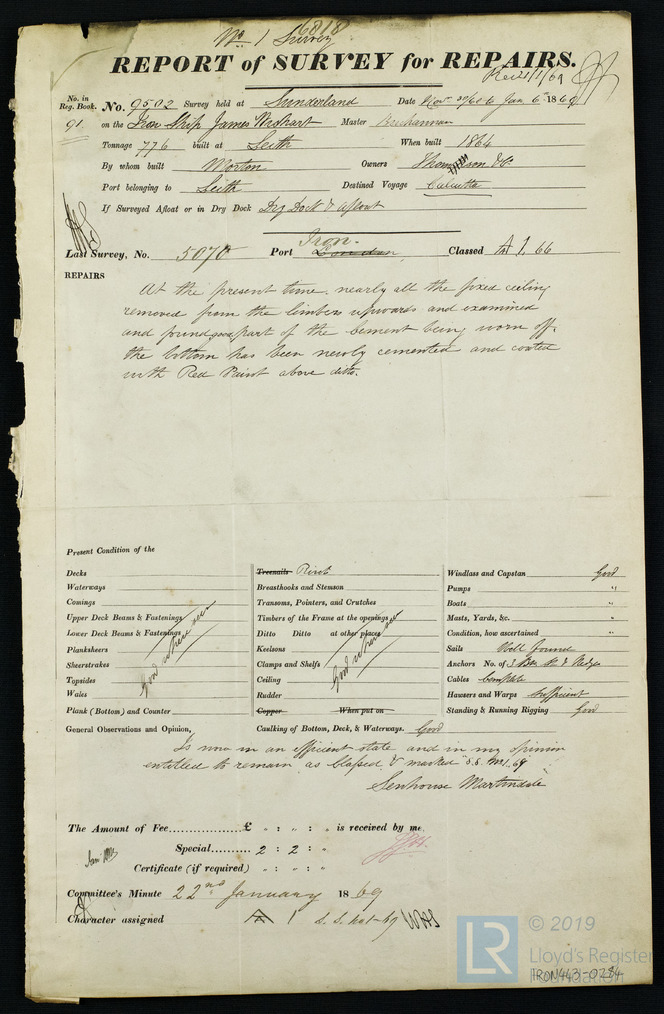 No 1 Survey 6818
REPORT of SURVEY for REPAIRS.
Rec 21/1/69
No. in Reg. Book. No. 9502 Survey held at Sunderland Date Nov. 30/68 to Jan 6th 1869
91. on the Iron Ship James Wishart Master Buchannan
Tonnage 776 built at Leith When built 1864
By whom built Morton Owners Thompson & Co
Port belonging to Leith Destined Voyage Calcutta
If Surveyed Afloat or in Dry Dock Dry Dock & Afloat
Iron.
Last Survey, No. 5070 Port London Classed A 1. 66
REPAIRS
At the present time nearly all the fixed ceiling
removed from the limbers upwards and examined
and found good part of the cement being worn off.
the bottom has been newly cemented and coated
with Red Paint above ditto.
Present Condition of the
Decks
Waterways
Comings
Upper Deck Beams & Fastenings
Lower Deck Beams & Fastenings
Planksheers
Sheerstrakes
Topsides
Wales
Plank (Bottom) and Counter
good where seen
Treenails Rivets
Breasthooks and Stemson
Transoms, Pointers, and Crutches
Timbers of the Frame at the openings
Ditto Ditto at other places
Keelsons
Clamps and Shelfs
Ceiling
Rudder
Copper When put on
Caulking of Bottom, Deck, & Waterways. Good
good where seen
Windlass and Capstan Good
Pumps "
Boats "
Masts, Yards, &c. "
Condition, how ascertained "
Sails Well found
Anchors No. of 3 Br St & Kedges
Cables Complete
Hawsers and Warps Sufficient
Standing & Running Rigging Good
General Observations and Opinion,
Is now in an efficient state and in my opinion
entitled to remain as Classed & marked S.S. No 1. 69
Senhouse Martindale
The Amount of Fee £ " : " : " is received by me.
Special 2 : 2 : "
Certificate (if required) " : " : "
Committee's Minute 22nd January 1869
Character assigned A 1 S.S. No 1-69
LR
© 2019
Lloyd's Register
Foundation
IRON443-0284